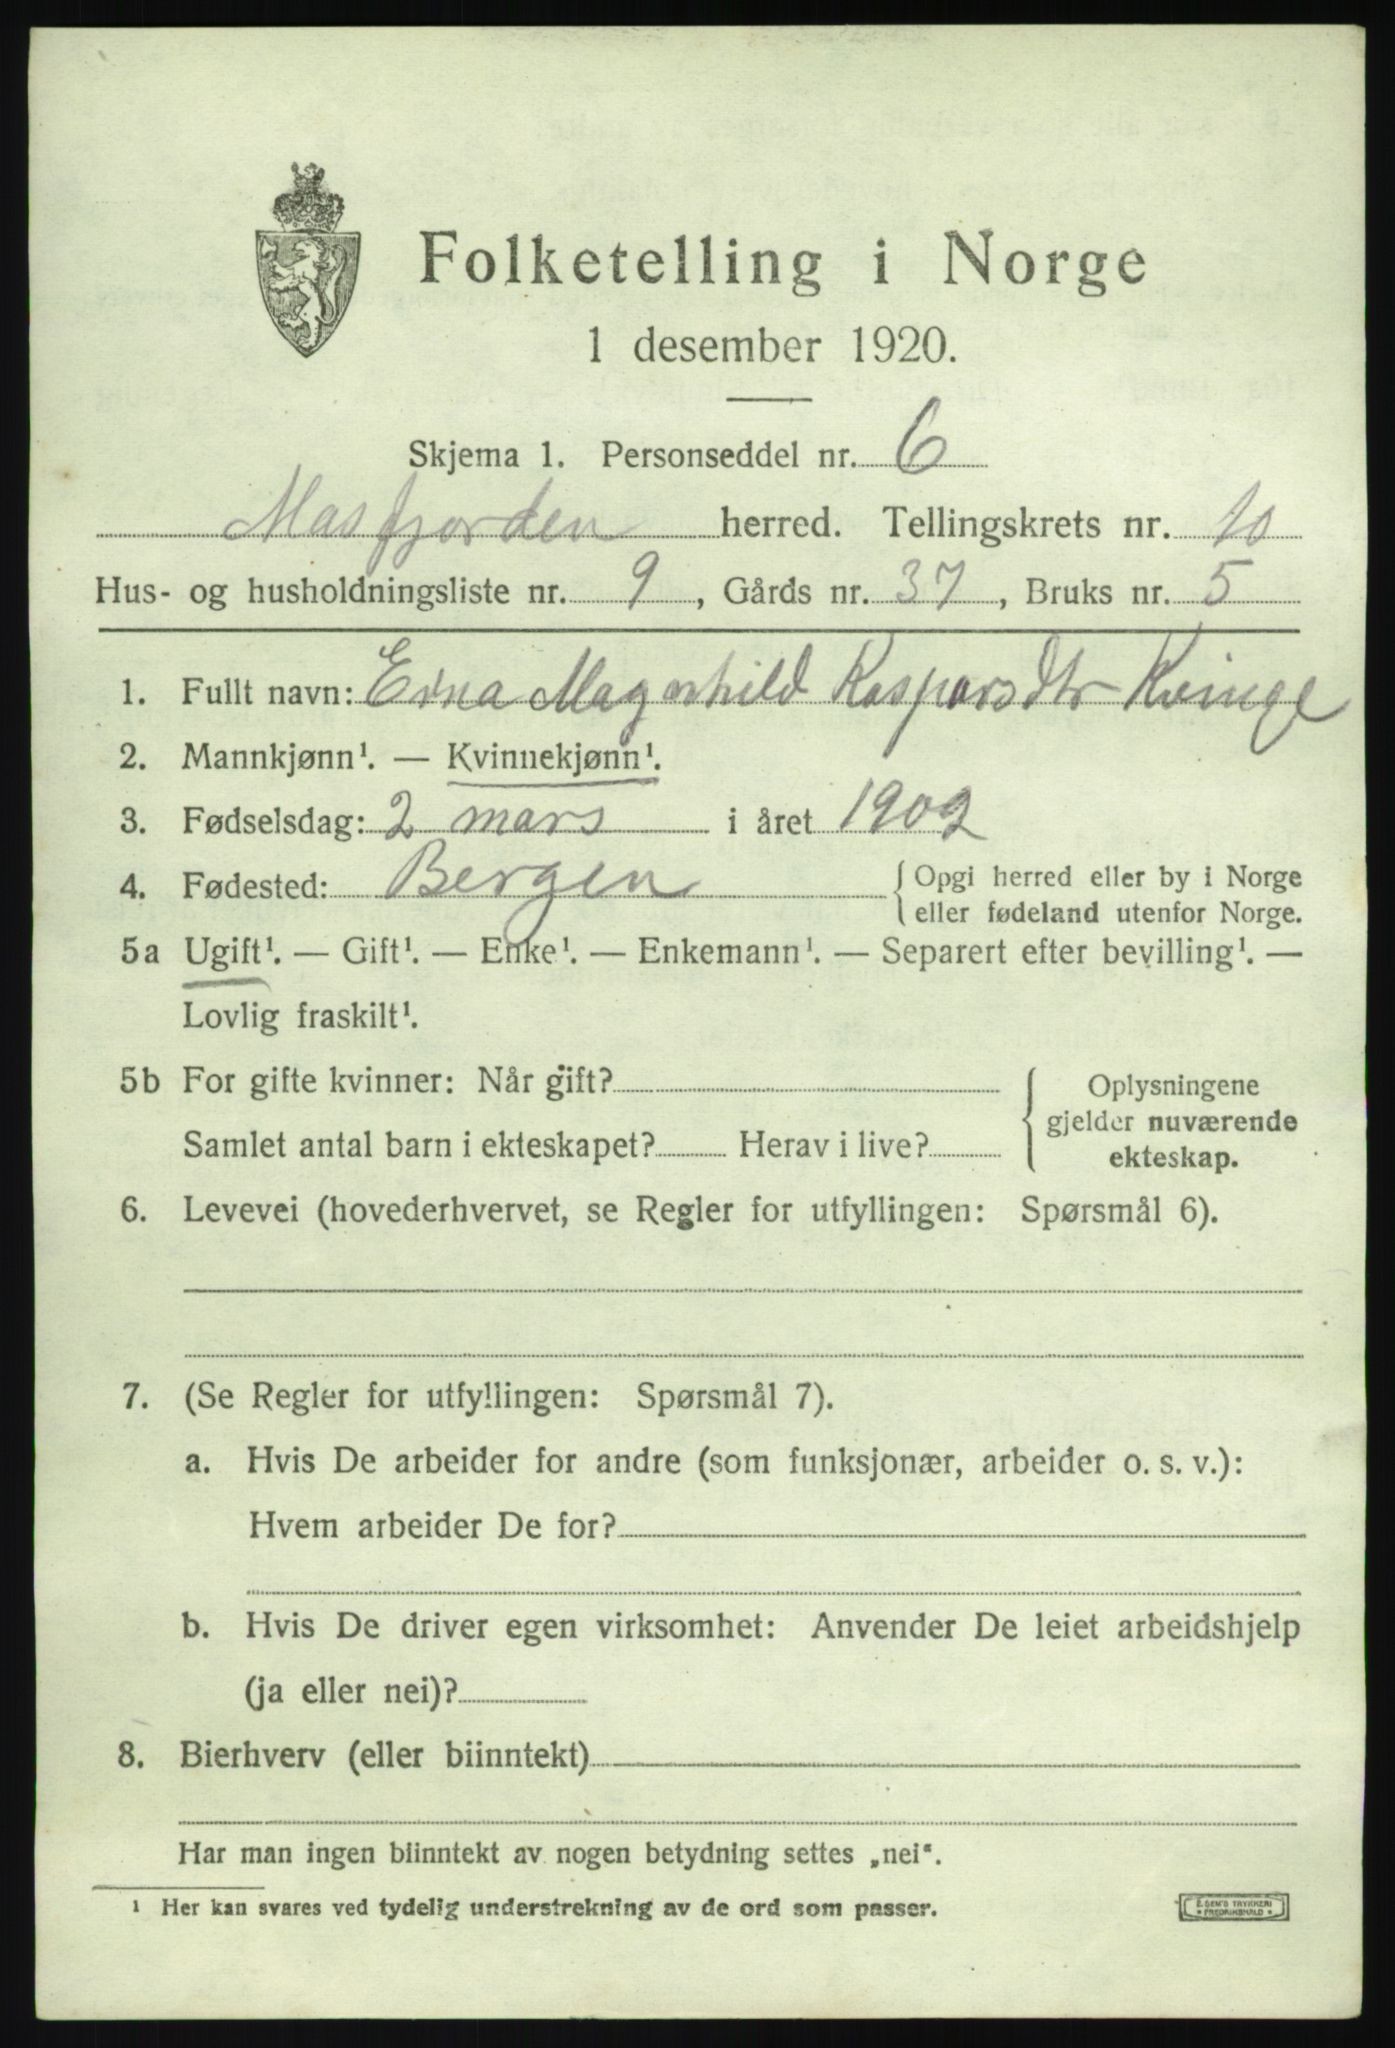 Folketelling i Norge
1 desember 1920.
Skjema 1. Personseddel nr. 6
Masfjorden herred. Tellingskrets nr. 10
Hus- og husholdningsliste nr. 9, Gårds nr. 37, Bruks nr. 5
1. Fullt navn: Erna Magnhild Kaspars Dtr Kvinge
2. Mannkjønn¹. — Kvinnekjønn¹.
3. Fødselsdag: 2 mars i året 1902
4. Fødested: Bergen { Opgi herred eller by i Norge
eller fødeland utenfor Norge.
5a Ugift¹. — Gift¹. — Enke¹. — Enkemann¹. — Separert efter bevilling¹. —
Lovlig fraskilt¹.
5b For gifte kvinner: Når gift? { Oplysningene
gjelder nuværende
Samlet antal barn i ekteskapet? Herav i live? ekteskap.
6. Levevei (hovederhvervet, se Regler for utfyllingen: Spørsmål 6).
7. (Se Regler for utfyllingen: Spørsmål 7).
a. Hvis De arbeider for andre (som funksjonær, arbeider o. s. v.):
Hvem arbeider De for?
b. Hvis De driver egen virksomhet: Anvender De leiet arbeidshjelp
(ja eller nei)?
8. Bierhverv (eller biinntekt)
Har man ingen biinntekt av nogen betydning settes „nei“.
¹ Her kan svares ved tydelig understrekning av de ord som passer.
E. SEM'S TRYKKERI
* FREDRIKSHALD *